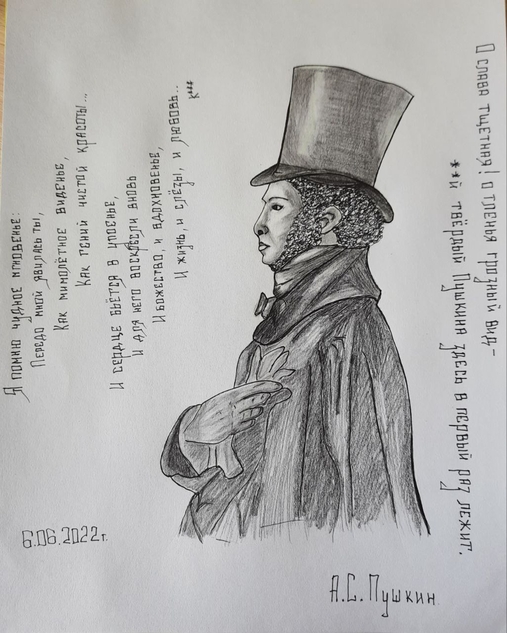 Я помню чудное мгновенье:
Передо мной явилась ты,
Как мимолётное виденье,
Как гений чистой красоты...
И сердце бьётся в упоенье,
И для него воскресли вновь
И божество, и вдохновенье,
И жизнь, и слёзы, и любовь..
К***
О слава тщетная! о тленья грозный вид-
**й твёрдый Пушкина здесь в первый раз лежит.
6.06.2022г.
А.С.Пушкин.